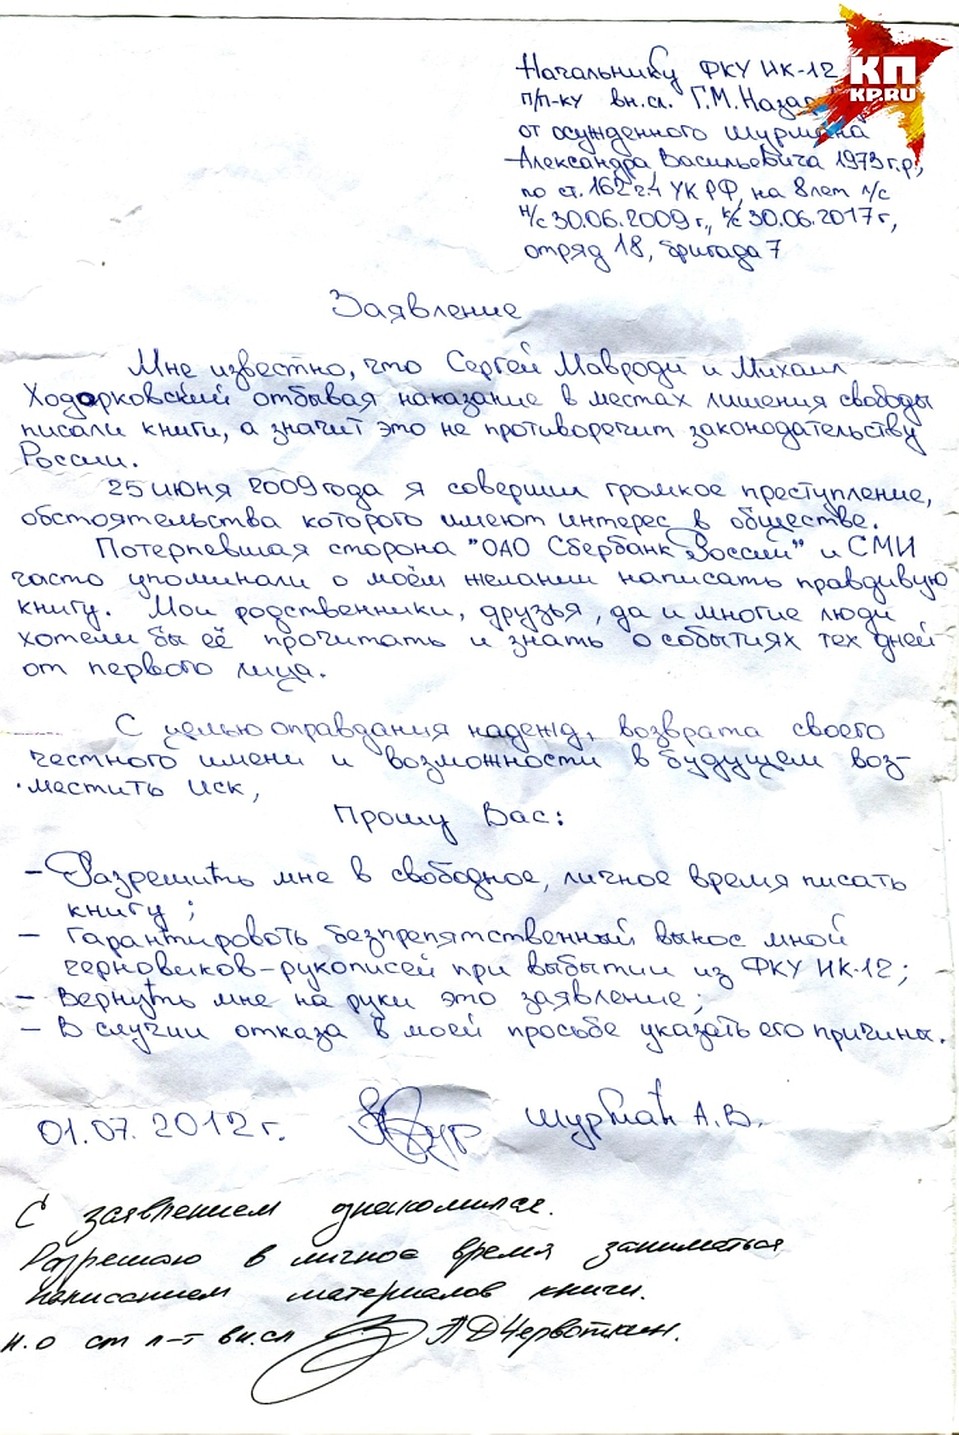 Начальнику ФКУ ИК-12
п/п-ку вн.сл. Г.М.
КП
KP.RU
от осужденного Шурмана
Александра Васильевича 1973 г.р.,
по ст. 162 ч.4 УК РФ, на 8 лет л/с
н/с 30.06.2009 г., к/с 30.06.2017 г,
отряд 18, бригада 7
Заявление
Мне известно, что Сергей Мавроди и Михаил
Ходорковский отбывая наказание в местах лишения свободы
писали книги, а значит это не противоречит законодательству
России.
25 июня 2009 года я совершил громкое преступление,
обстоятельства которого имеют интерес в обществе.
Потерпевшая сторона "ОАО Сбербанк России" и СМИ
часто упоминали о моём желании написать правдивую
книгу. Мои родственники, друзья, да и многие люди
хотели бы её прочитать и знать о событиях тех дней
от первого лица.
С целью оправдания надежд, возврата своего
честного имени и возможности в будущем воз-
местить иск,
Прошу Вас:
– Разрешить мне в свободное, личное время писать
книгу;
– Гарантировать безпрепятственный вынос мной
черновиков-рукописей при выбытии из ФКУ ИК-12;
– Вернуть мне на руки это заявление;
– В случии отказа в моей просьбе указать его причины.
01.07.2012 г. Шурман А.В.
С заявлением ознакомился.
Разрешаю в личное время заниматься
написанием материалов книги.
и.о ст л-т вн.сл А Д Червоткин.